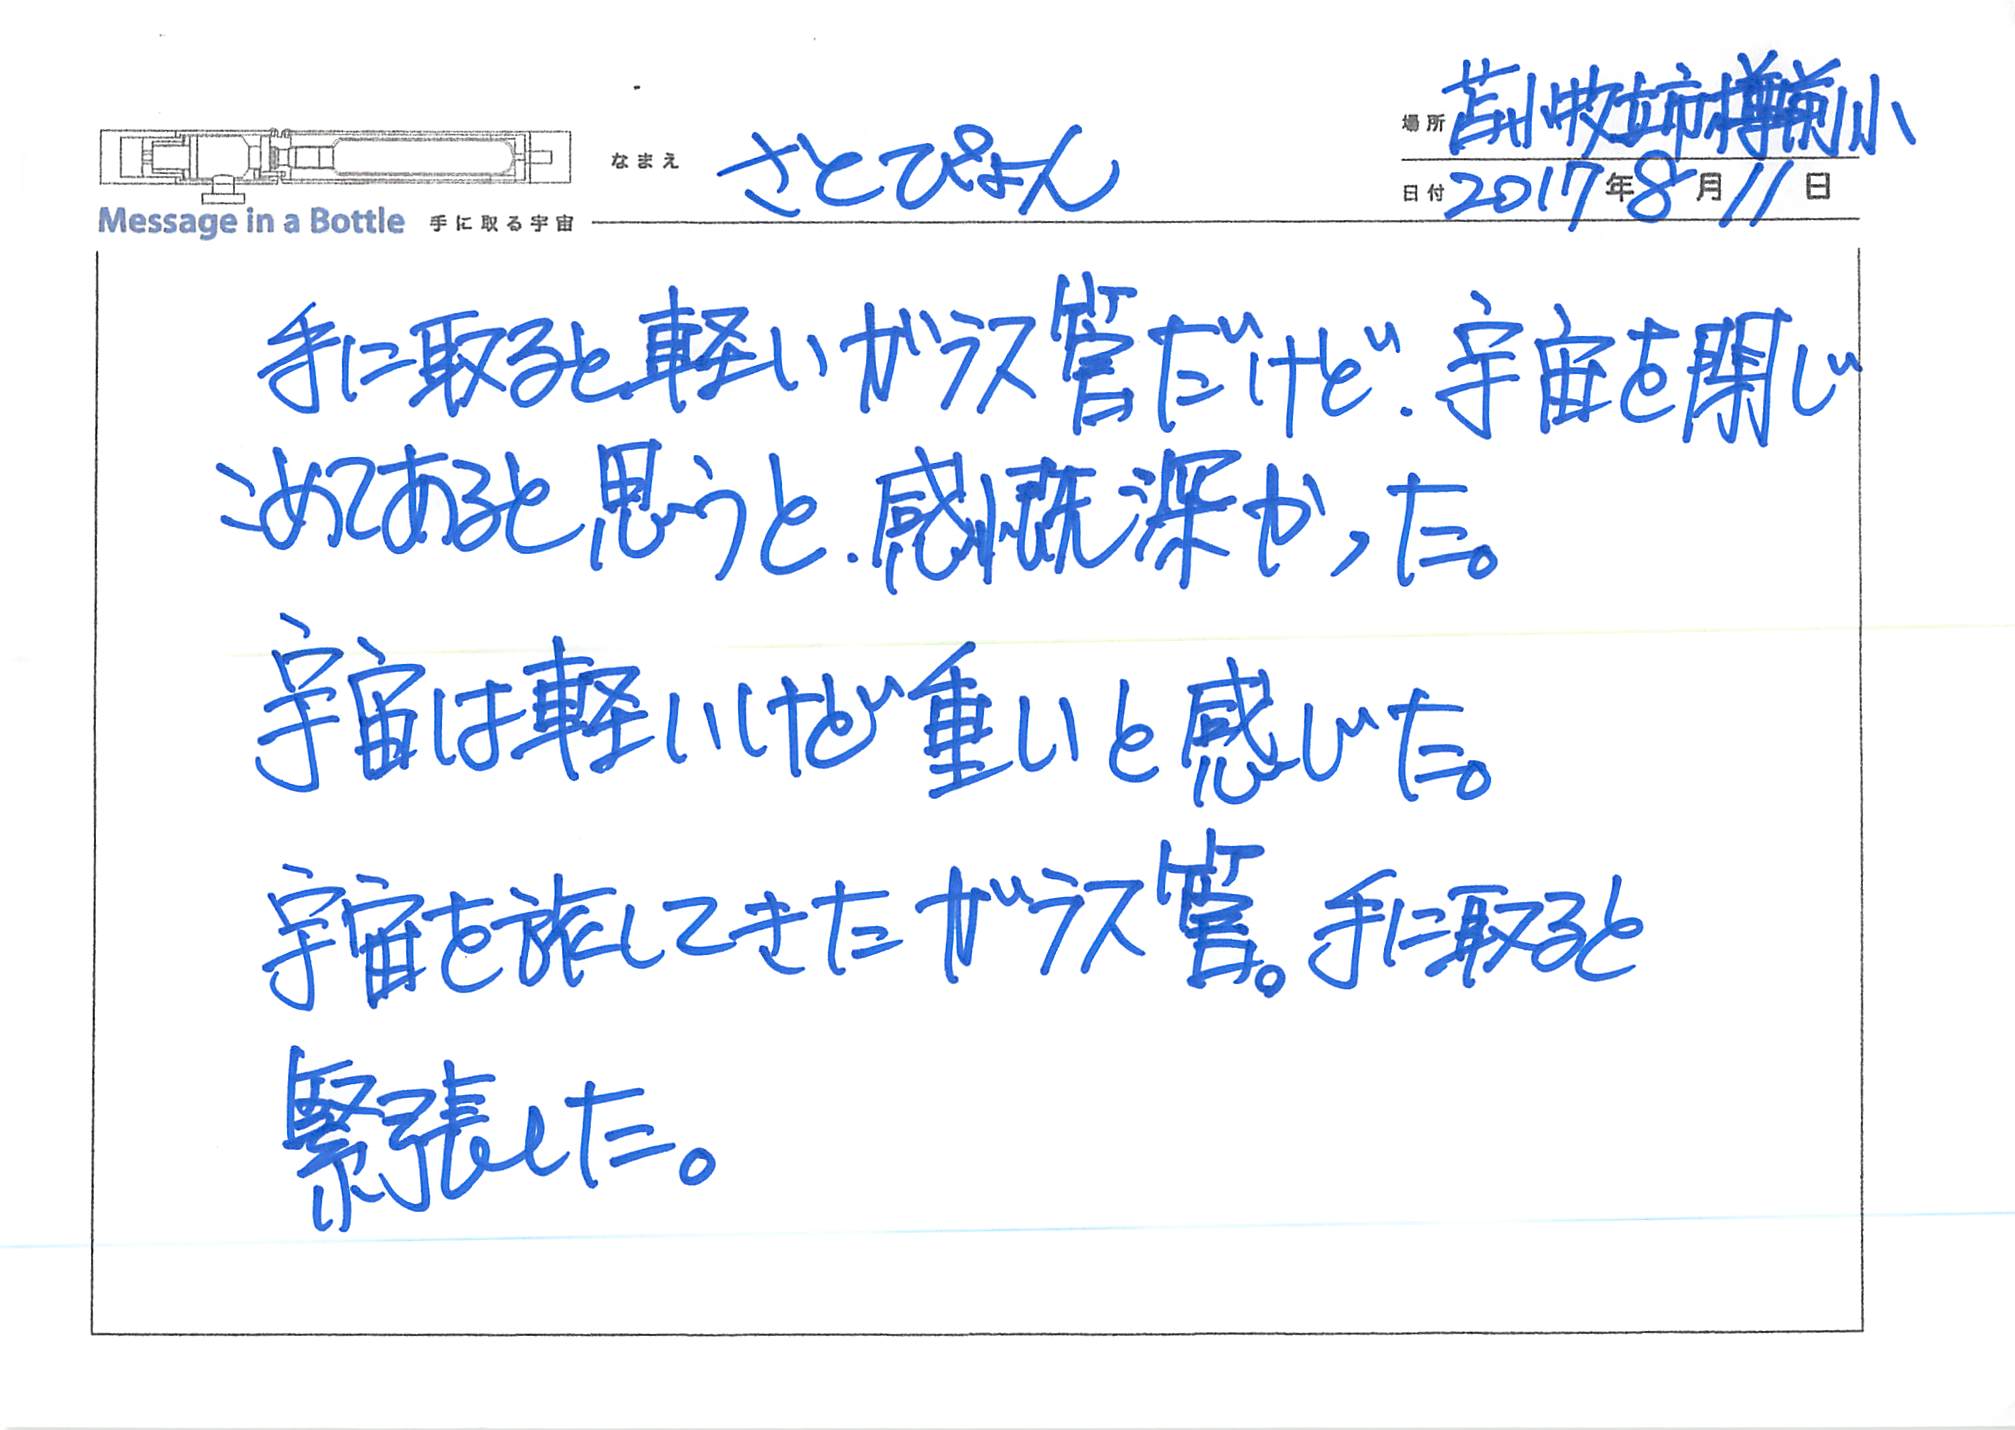 場所 苫小牧市立樽前小
なまえ さとぴょん
日付 2017年8月11日
Message in a Bottle 手に取る宇宙
手に取ると、軽いガラス管だけど、宇宙を閉じ
こめてあると思うと、感慨深かった。
宇宙は軽いけど重いと感じた。
宇宙を旅してきたガラス管。手に取ると
緊張した。